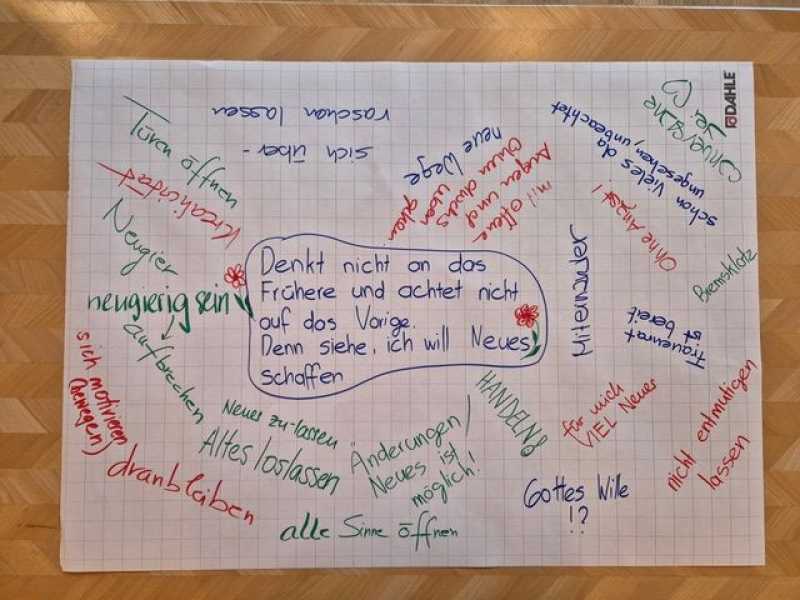 DAHLE
Türen öffnen
Kreativität
Neugier
neugierig sein
aufbrechen
sich motivieren
(bewegen)
dranbleiben
sich über-
raschen lassen
neue Wege
mit offene
Augen und
Ohren durchs
Leben gehen
schon vieles da
ungesehen, unbeachtet
Ohne Angst!
Bremsklotz
Miteinander
Frauenrat
ist bereit
Denkt nicht an das
Frühere und achtet nicht
auf das Vorige.
Denn siehe, ich will Neues
schaffen
Neues zu-lassen
Altes loslassen
Änderungen/
Neues ist
möglich!
HANDELN
für mich
VIEL Neues
nicht entmutigen
lassen
Gottes Wille
!?
alle Sinne öffnen